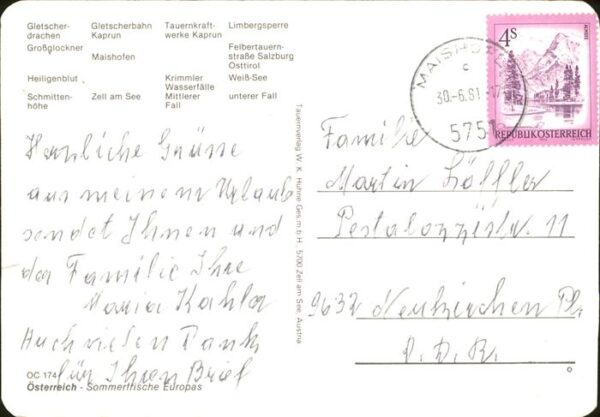 Gletscher- Gletscherbahn Tauernkraft- Limbergsperre
drachen Kaprun werke Kaprun
Großglockner Felbertauern-
Maishofen straße Salzburg
Osttirol
Heiligenblut Krimmler Weiß-See
Wasserfälle
Schmitten- Zell am See Mittlerer unterer Fall
höhe Fall
Herzliche Grüsse
aus meinem Urlaub
sendet Ihnen und
der Familie Ihre
Maria Kahla
Auch vielen Dank
für Ihren Brief
OC 174
Österreich - Sommerfrische Europas
Tauernverlag W. K. Huhne Ges.m.b.H. 5700 Zell am See, Austria
4S
REPUBLIK ÖSTERREICH
MAISHOFEN
c
30.-6.81-17
5751
Familie
Martin Löffler
Pestalozzistr. 11
9632 Neukirchen Pl.
D.D.R.